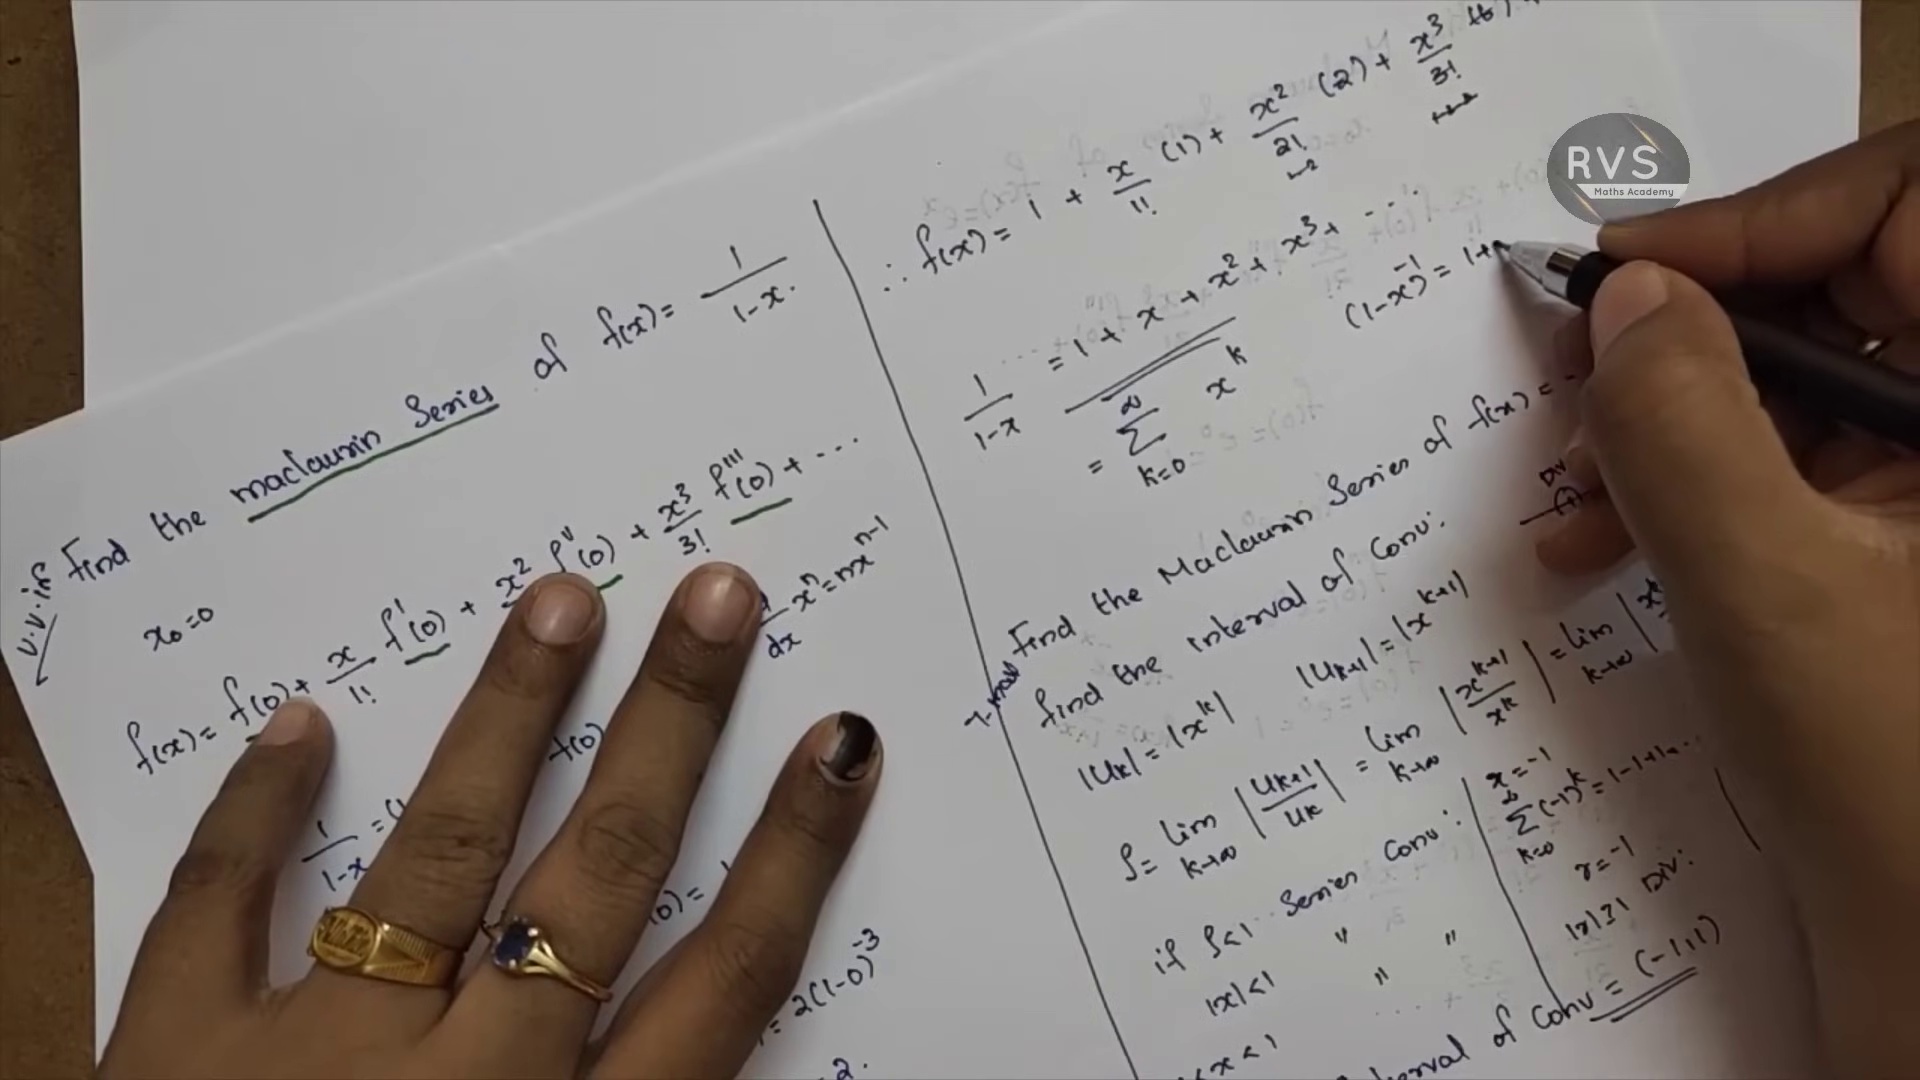 v.v.if Find the maclaurin Series of f(x) = 1/1-x.
x₀=0
f(x) = f(0) + x/1! f'(0) + x²/2! f''(0) + x³/3! f'''(0) + ...
d/dx xⁿ = nxⁿ⁻¹
f(0)
1/1-x = (
(0) =
= 2(1-0)⁻³
= 2.
∴ f(x) = 1 + x/1! (1) + x²/2! (2) + x³/3! (6)
1/1-x = 1 + x + x² + x³ + ...
(1-x)⁻¹ = 1+
= ∞∑k=0 xᵏ
Find the Maclaurin Series of f(x) =
find the interval of Conv:
Div
|uk| = |xᵏ| |uk+1| = |xᵏ⁺¹|
ρ = lim k→∞ |uk+1/uk| = lim k→∞ |xᵏ⁺¹/xᵏ| = lim k→∞
if ρ<1 Series Conv:
|x|<1 " "
x<1
x=-1
∞∑k=0 (-1)ᵏ = 1-1+1...
r=-1
|r|≥1 Div:
of Conv = (-1,1)
RVS
Maths Academy